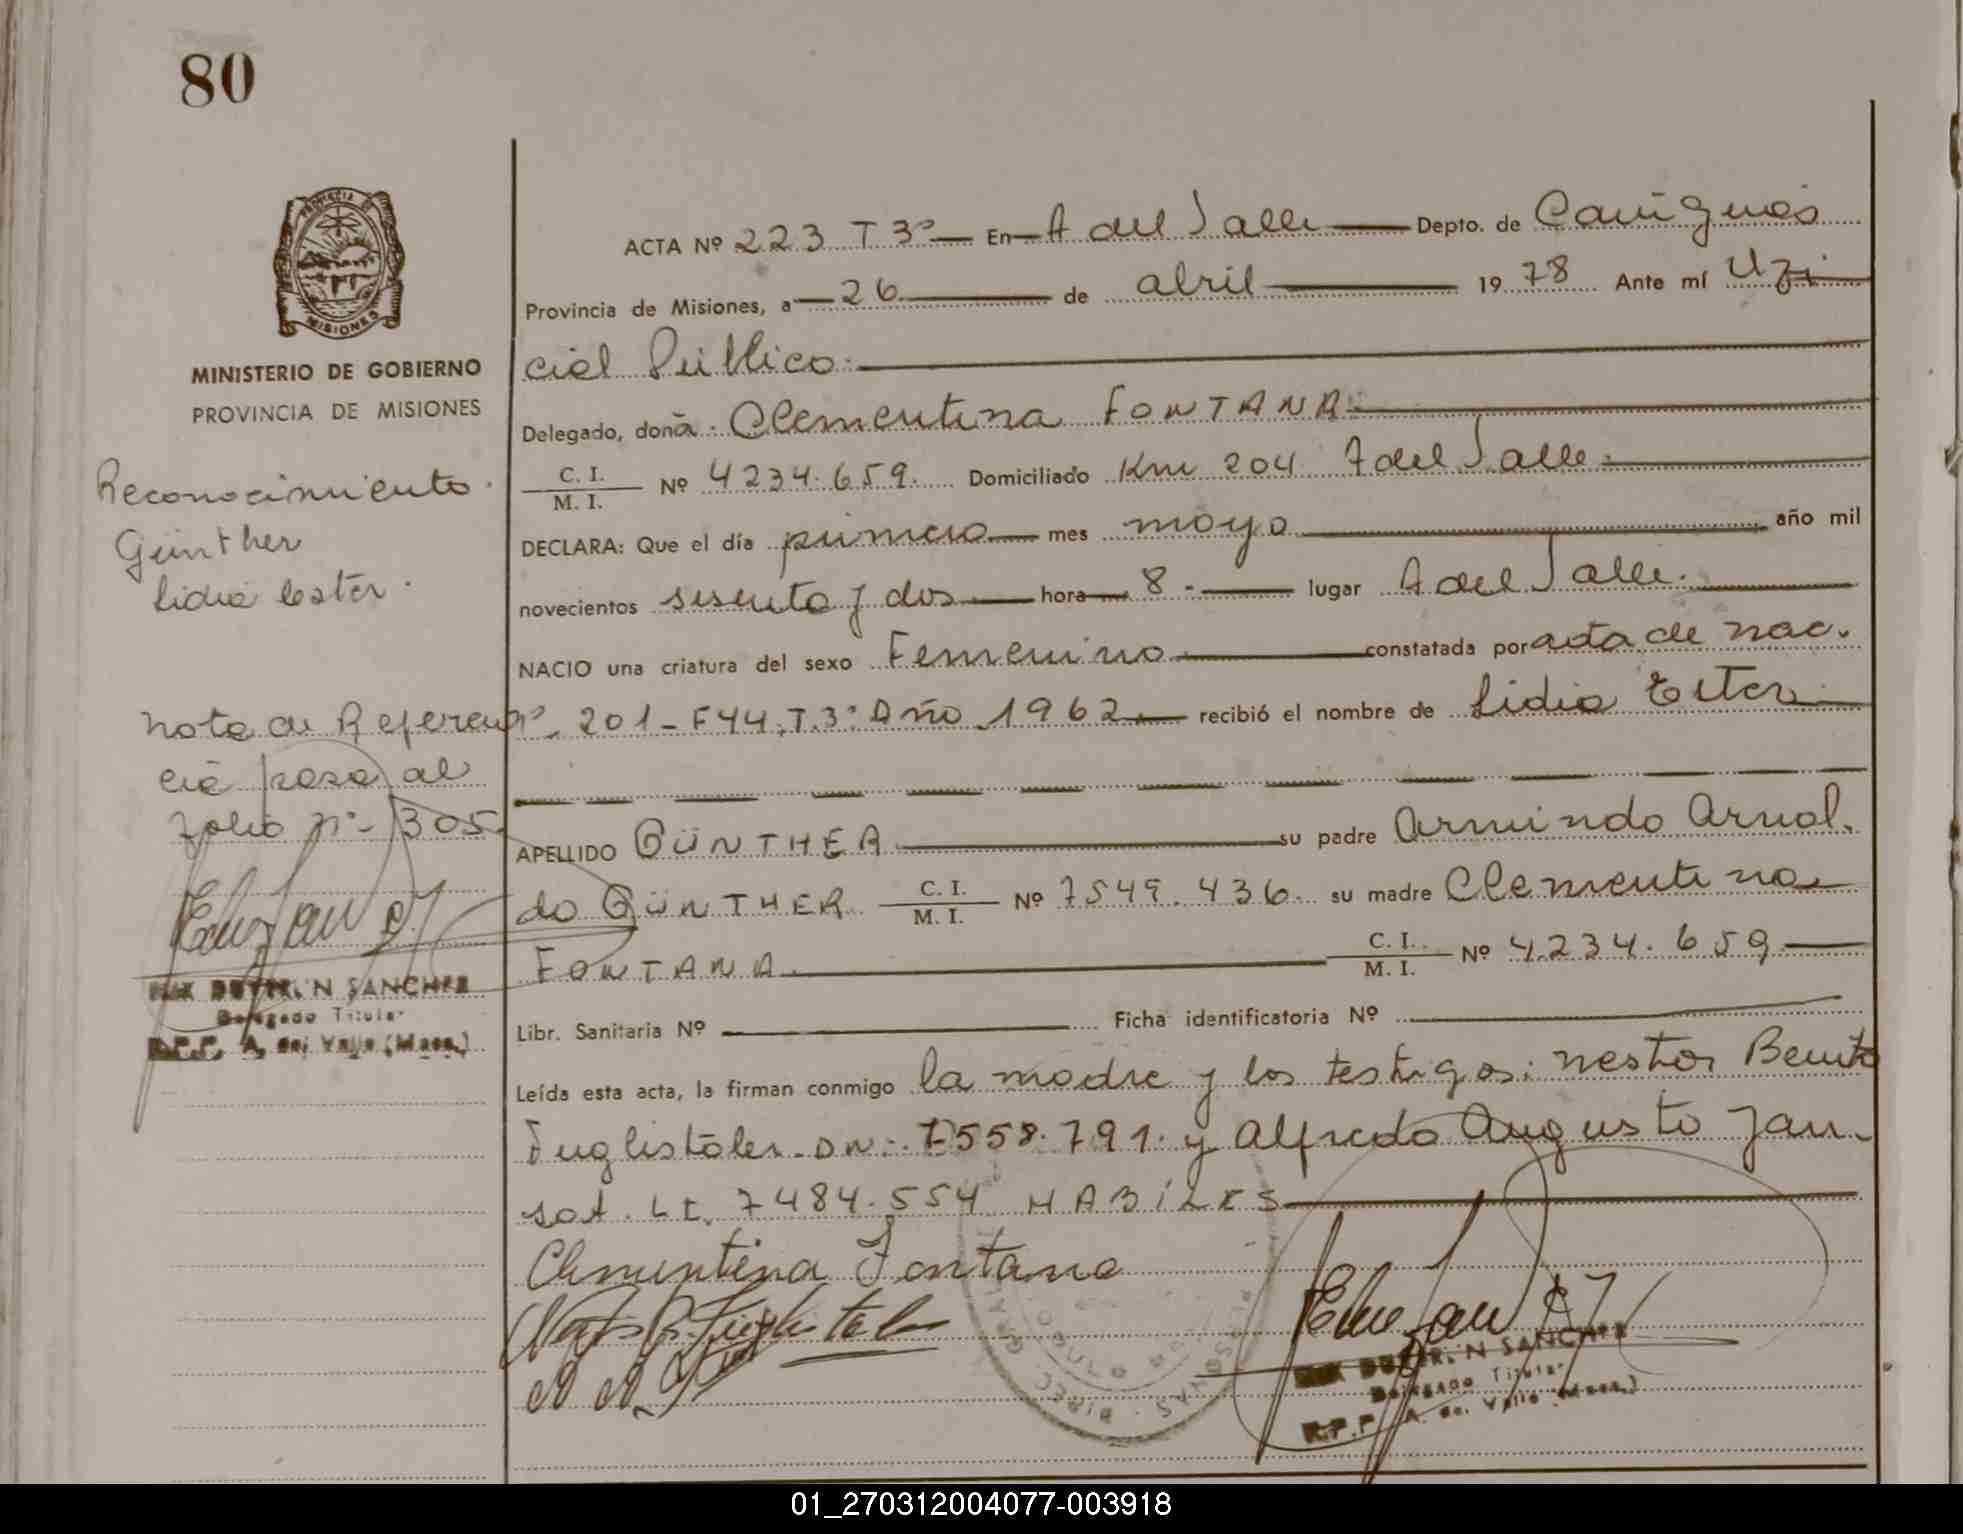 80
PROVINCIA DE
MISIONES
MINISTERIO DE GOBIERNO
PROVINCIA DE MISIONES
Reconocimiento.
Günther
Lidia Ester.
Nota de Referen
cia pasa al
folio nº 305
SANCHEZ
Delegado Titular
R.P.P. A. del Valle (Mnes.)
ACTA Nº 223 T 3º En A del Valle Depto. de Cainguás
Provincia de Misiones, a 26 de abril 1978 Ante mí Ofi
cial Público.
Delegado, doña Clementina FONTANA
C. I.
M. I. Nº 4234.659. Domiciliado Km 204 A del Valle.
DECLARA: Que el día primero mes mayo año mil
novecientos sesenta y dos hora 8. lugar A del Valle.
NACIO una criatura del sexo Femenino constatada por acta de nac.
nº 201-F44.T.3º Año 1962 recibió el nombre de Lidia Ester
APELLIDO GÜNTHER su padre Armindo Arnol-
do GÜNTHER C. I.
M. I. Nº 7549.436. su madre Clementina
FONTANA C. I.
M. I. Nº 4.234.659
Libr. Sanitaria Nº Ficha identificatoria Nº
Leída esta acta, la firman conmigo la madre y los testigos: Nestor Benito
Fuglistaler. DN. 7558.791. y Alfredo Augusto Jan-
sat. LE. 7484.554 HABILES
Clementina Fontana
SANCHEZ
Delegado Titular
R.P.P. A. del Valle (Mnes.)
01_270312004077-003918